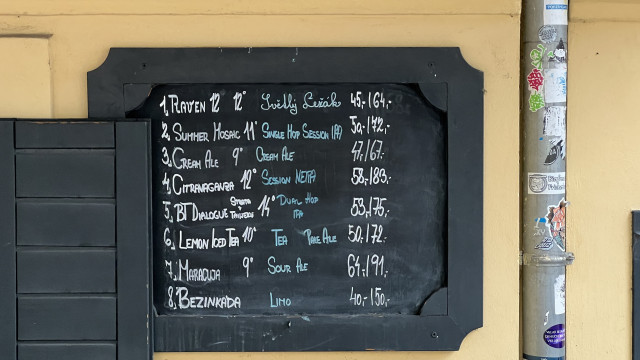 1, RAVEN 12 12° Světlý Ležák 45,-/64,-
2, SUMMER MOSAIC 11° SINGLE HOP SESSION IPA 50,-/72,-
3, CREAM ALE 9° CREAM ALE 47,-/67,-
4, CITRANAGANZA 12° SESSION NEIPA 58,-/83,-
5, BT DIALOGUE 14° DUAL HOP IPA 53,-/75,-
6, LEMON ICED TEA 10° TEA PALE ALE 50,-/72,-
7, MARACUJA 9° SOUR ALE 64,-/91,-
8, BEZINKÁDA LIMO 40,-/50,-